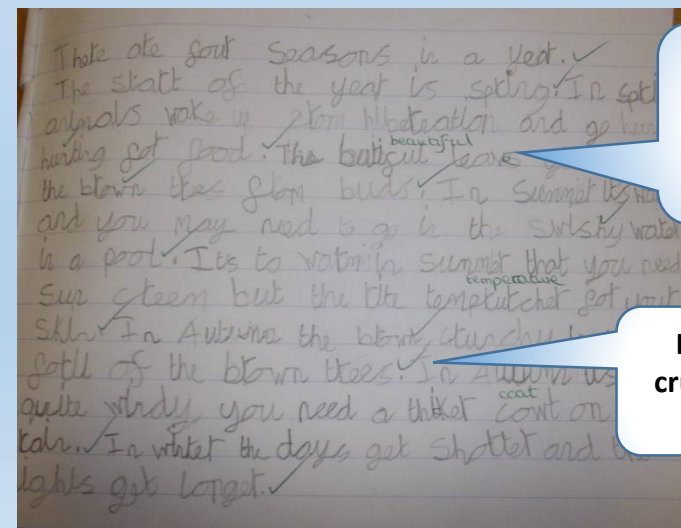 There are four seasons in a year.
The start of the year is spring. In spri
animals wake up from hiberation and go hun
beautiful
hunting for food. The butiful leave
the brown trees from buds. In Summer its
and you may need to go in the water
in a pool. Its to warm in summer that you need
temperature
Sun creem but the rite for your
skin. In Autumn the brown crunchy
of the brown trees. In Autumn its
coat
quite windy you need a thiker cowt on
rain. In winter the days get shorter and the
ights get longer.
cr